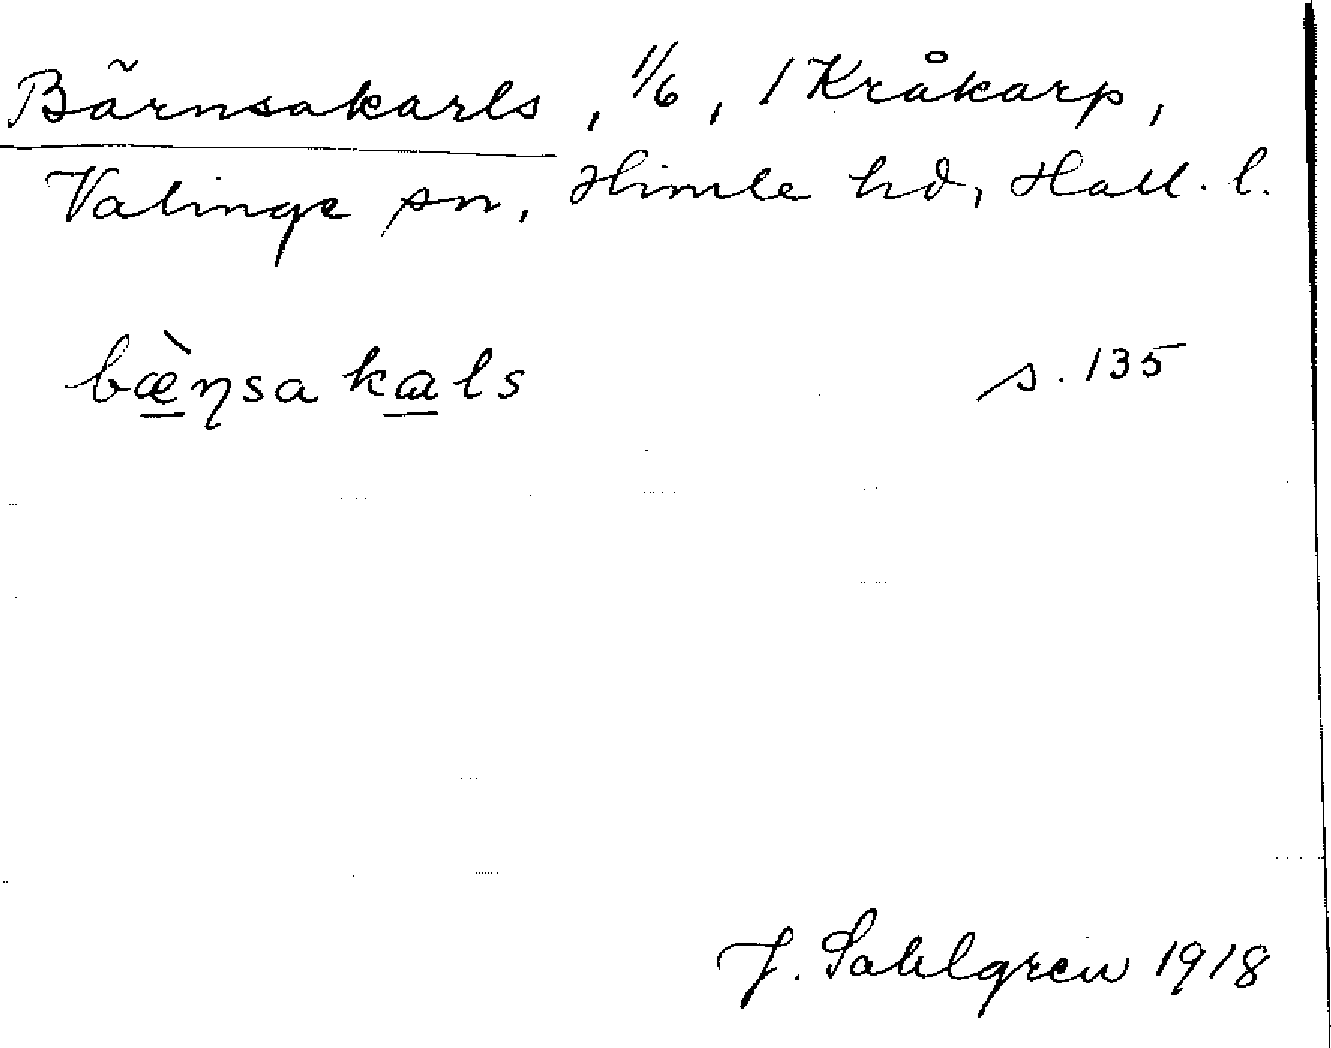 Bãrnsakarls, 1/6, 1 Kråkarp,
Valinge sn, Himle hd, Hall. l.
bæ̀ɳsa kals s. 135
J. Sahlgren 1918